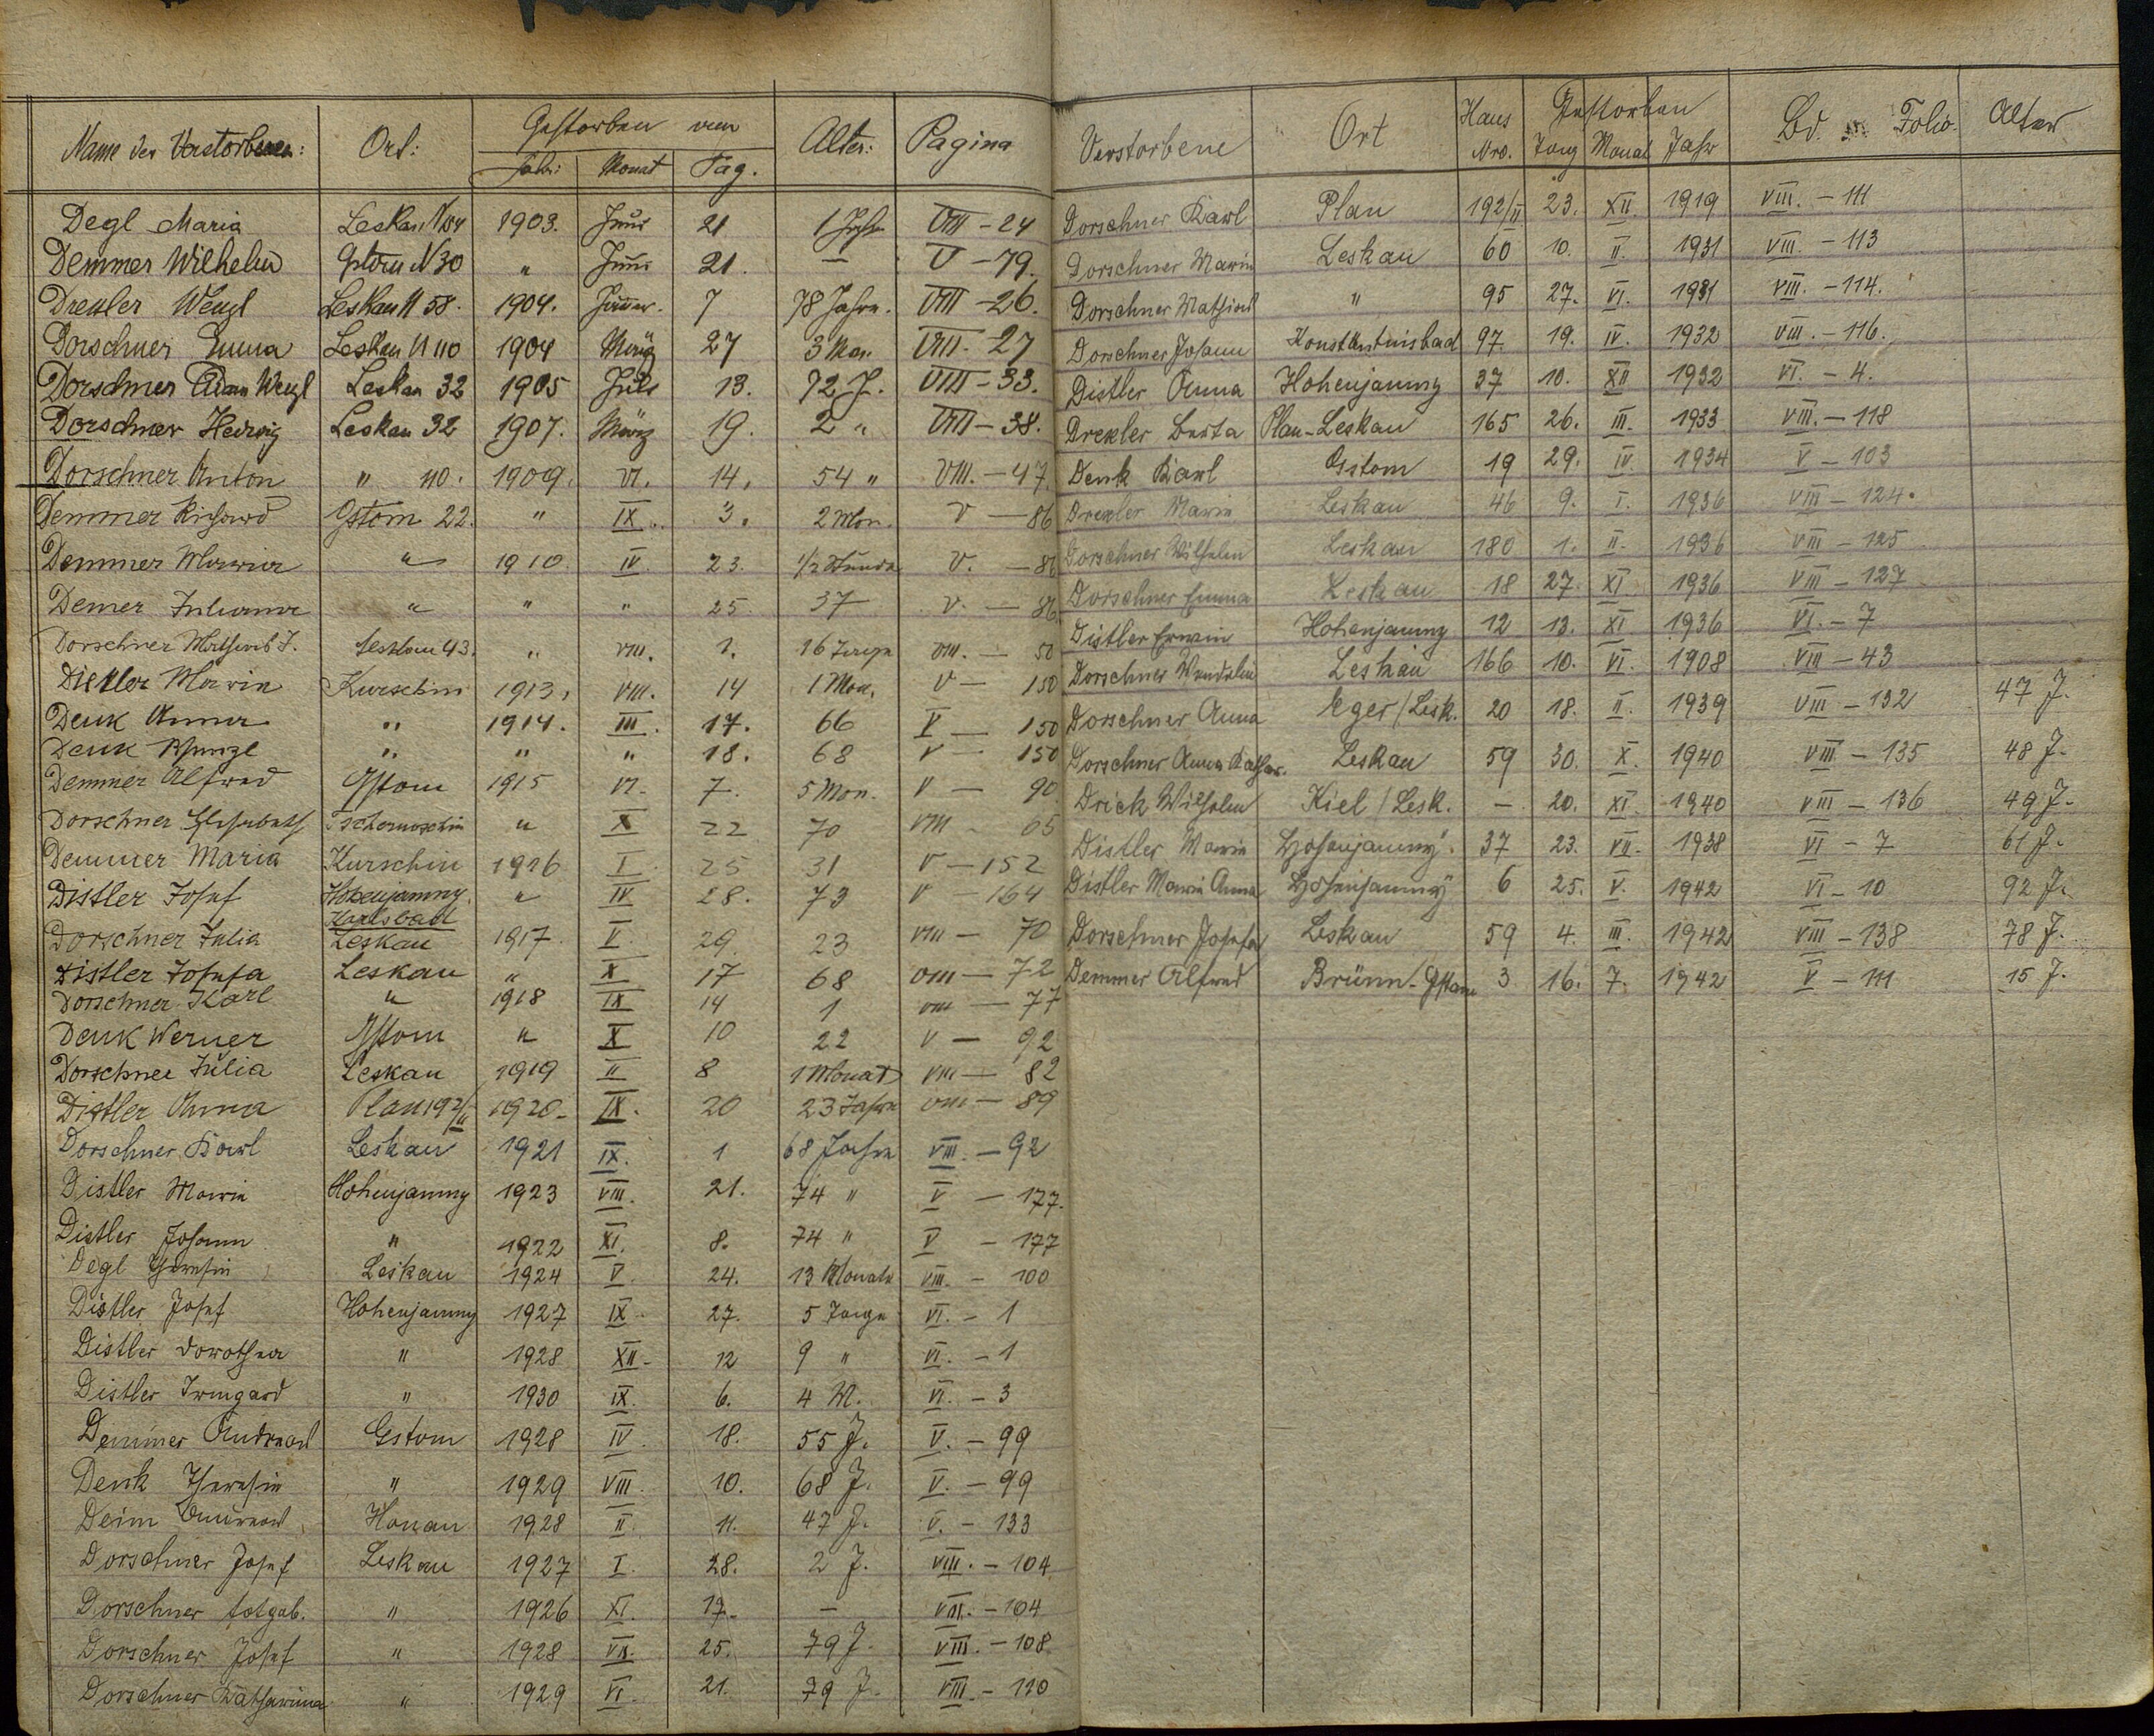 Name der Verstorbenen: Ort: Gestorben am Alter: Pagina
Jahr: Monat Tag.
Degl Maria Leskau N 54 1903. Juni 21 1 Jahr VIII - 24
Demmer Wilhelm Gstom N 30 " Juni 21. — V - 79.
Drexler Wenzl Leskau N 58. 1904. Jänner. 7 78 Jahre. VIII - 26.
Dorschner Emma Leskau N 110 1904 März 27 3 Mon. VIII - 27
Dorschner Adam Wenzl Leskau 32 1905 Juli 13. 72 J. VIII - 33.
Dorschner Hedwig Leskau 32 1907. März 19. 2 " VIII - 38.
Dorschner Anton " 110. 1909. VI. 14. 54 " VIII. - 47.
Demmer Richard Gstom 22. " IX. 3. 2 Mon. V - 86
Demmer Maria " 1910. IV. 23. 1/2 Stunde V. - 86
Demer Juliana " " " 25. 37 V. - 86
Dorschner Mathias J. Leskau 43. " VIII. 1. 16 Tage VIII. - 50
Distler Maria Kurschin 1913. VIII. 14 1 Mon. V - 150
Denk Anna " 1914. III. 17. 66 V - 150
Denk " " " 18. 68 V - 150
Demmer Alfred Gstom 1915 VI. 7. 5 Mon. V - 90
Dorschner Elisabeth Tschernoschin " X 22 70 VIII - 65
Demmer Maria Kurschin 1916 I 25 31 V - 152
Distler Josef Hohenjamny. " IV 28. 73 V - 164
Karlsbad
Dorschner Julia Leskau 1917. V. 29. 23 VIII - 70
Distler Josefa Leskau " X 17 68 VIII - 72
Dorschner Karl " 1918 IX 14 1 VIII - 77
Denk Werner Gstom " X 10 22 V - 92
Dorschner Julia Leskau 1919 II 8 1 Monat VIII - 82
Distler Anna Plan 192/II 1920 - IX. 20 23 Jahre VIII - 89
Dorschner Karl Leskau 1921 IX. 1 68 Jahre VIII. - 92
Distler Maria Hohenjamny 1923 VIII. 21. 74 " V - 177.
Distler Johann " 1922 XI. 8. 74 " V - 177
Degl Theresia Leskau 1924 V. 24. 13 Monate VIII. - 100
Distler Josef Hohenjamny 1927 IX. 27. 5 Tage VI. - 1
Distler Dorothea " 1928 XII - 12 9 " VI. - 1
Distler Irmgard " 1930 IX. 6. 4 M. VI. - 3
Demmer Andreas Gstom 1928 IV. 18. 55 J. V. - 99
Denk Theresia " 1929 VIII. 10. 68 J. V. - 99
Deim Andreas Honau 1928 II. 11. 47 J. V. - 133
Dorschner Josef Leskau 1927 I. 28. 2 J. VIII. - 104
Dorschner totgeb. " 1926 XI. 17. — VIII. - 104
Dorschner Josef " 1928 VII. 25. 79 J. VIII. - 108
Dorschner Katharina " 1929 VI. 21. 79 J. VIII. - 110
Verstorbene Ort Haus Nro. Gestorben Bd. Folio. Alter
Tag Monat Jahr
Dorschner Karl Plan 192/II 23. XII. 1919 VIII. - 111
Dorschner Maria Leskau 60 10. II. 1931 VIII. - 113
Dorschner Mathias " 95 27. VI. 1931 VIII. - 114.
Dorschner Johann Konstantinsbad 97 19. IV. 1932 VIII. - 116.
Distler Anna Hohenjamny 37 10. XII 1932 VI. - 4.
Drexler Berta Plan-Leskau 165 26. III. 1933 VIII. - 118
Denk Karl Gstom 19 29. IV. 1934 V - 103
Drexler Maria Leskau 46 9. I. 1936 VIII - 124.
Dorschner Wilhelm Leskau 180 1. II. 1936 VIII - 125
Dorschner Emma Leskau 18 27. XI. 1936 VIII - 127
Distler Erwin Hohenjamny 12 13. XI. 1936 VI. - 7
Dorschner Wendelin Leskau 166 10. VI. 1908 VIII - 43
Dorschner Anna Eger/Lesk. 20 18. II. 1939 VIII - 132 47 J.
Dorschner Anna Kathar. Leskau 59 30. X. 1940 VIII - 135 48 J.
Drick Wilhelm Kiel/Lesk. — 20. XI. 1940 VIII - 136 49 J.
Distler Maria Hohenjamny. 37 23. VII. 1938 VI - 7 61 J.
Distler Maria Anna Hohenjamny 6 25. V. 1942 VI - 10 92 J.
Dorschner Josefa Leskau 59 4. III. 1942 VIII - 138 78 J.
Demmer Alfred Brünn-Gstom 3 16. 7. 1942 V - 111 15 J.